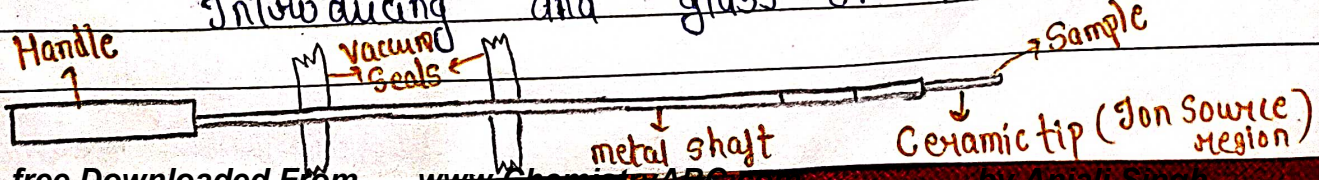 Introducing and glass
Handle
Vaccum
Seals
Sample
metal shaft
Ceramic tip (Ion Source
region)
free Downloaded From www.ChemistryABC by Anjali Singh